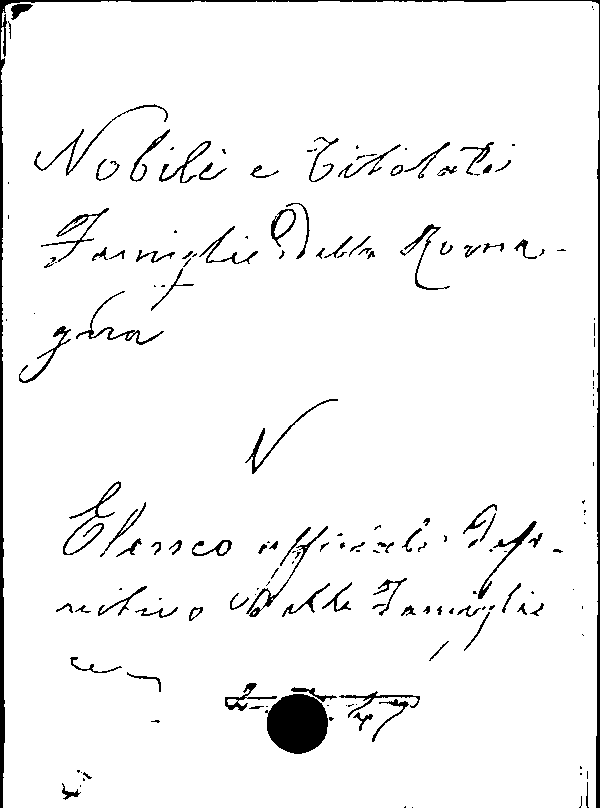 Nobili e Titolate
Famiglie della Roma-
gna
V
Elenco ufficiale defi-
nitivo delle Famiglie